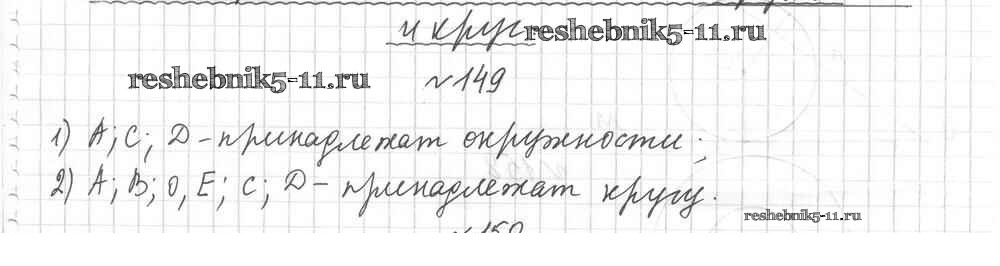 и круг reshebnik5-11.ru
reshebnik5-11.ru №149
1) А; С; D – принадлежат окружности;
2) А; В; О, Е; С; D – принадлежат кругу.
reshebnik5-11.ru